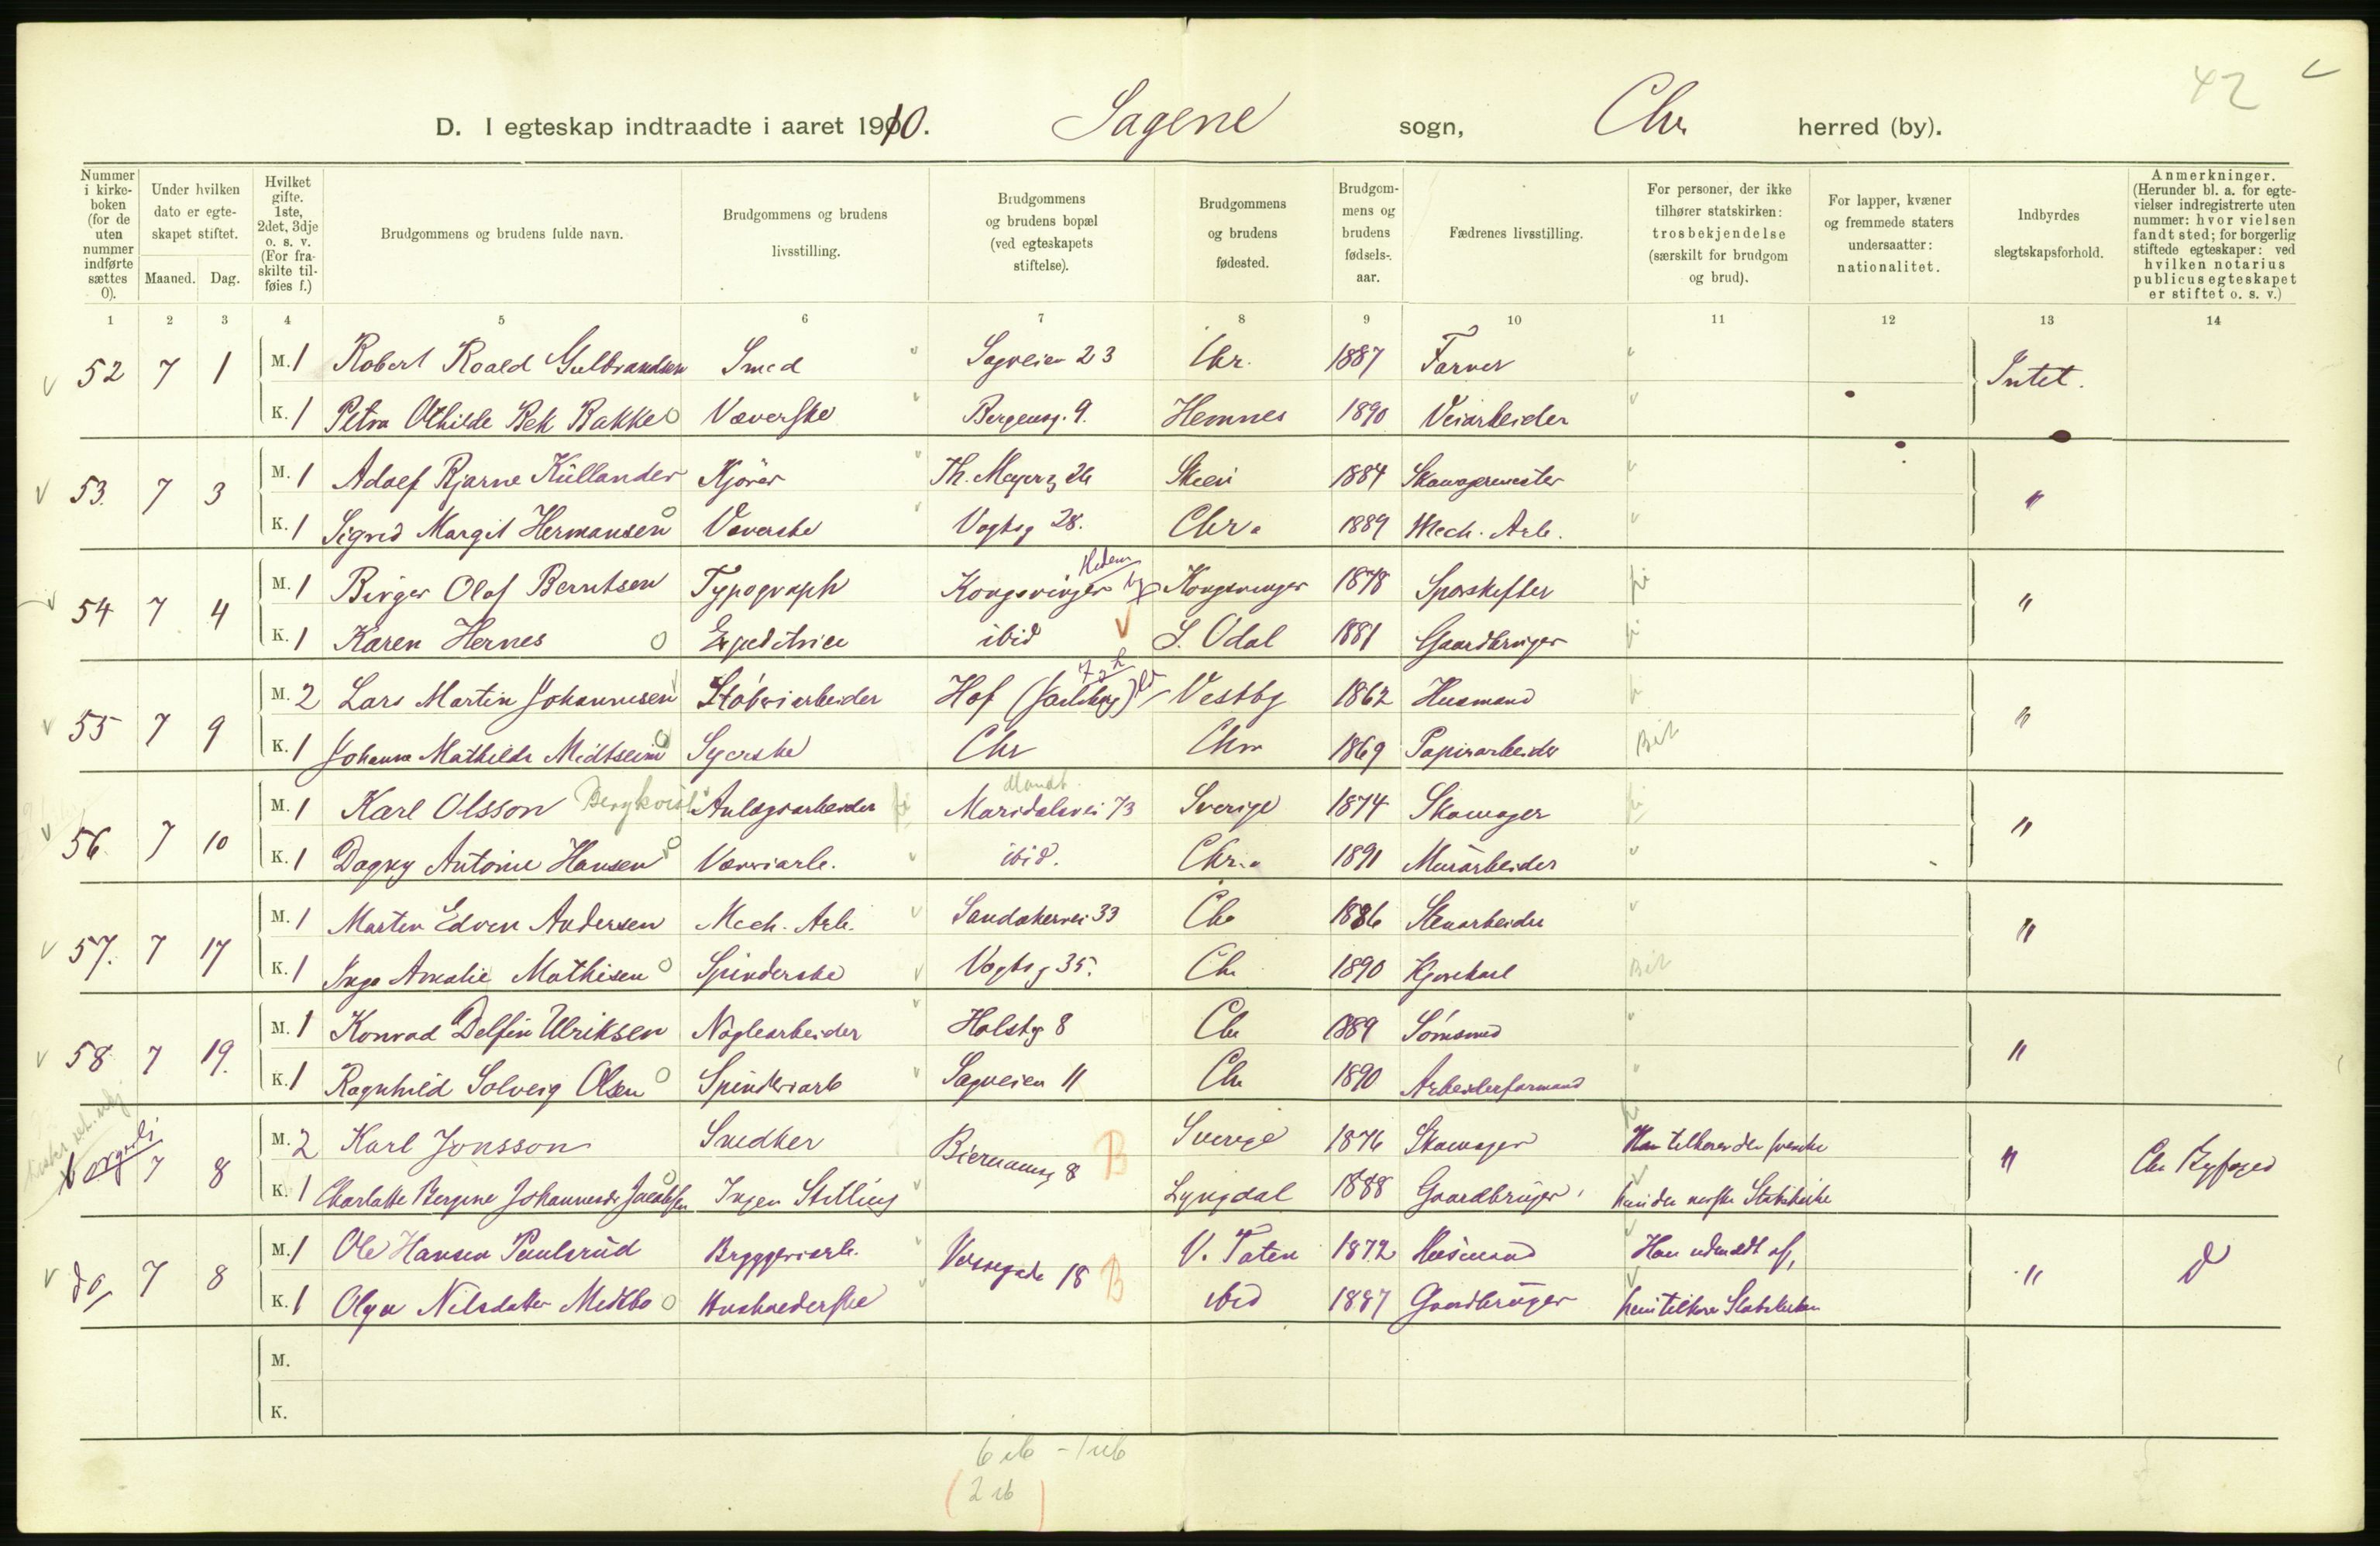 42
D. I egteskap indtraadte i aaret 1910. Sagene sogn, Chr herred (by).
Nummer i kirke-boken (for de uten nummer indførte sættes 0).
Under hvilken dato er egte-skapet stiftet.
Maaned. Dag.
Hvilket gifte. 1ste, 2det, 3dje o. s. v. (For fra-skilte til-føies f.)
Brudgommens og brudens fulde navn.
Brudgommens og brudens livsstilling.
Brudgommens og brudens bopæl (ved egteskapets stiftelse).
Brudgommens og brudens fødested.
Brudgom-mens og brudens fødsels-aar.
Fædrenes livsstilling.
For personer, der ikke tilhører statskirken: trosbekjendelse (særskilt for brudgom og brud).
For lapper, kvæner og fremmede staters undersaatter: nationalitet.
Indbyrdes slegtskapsforhold.
Anmerkninger. (Herunder bl. a. for egte-vielser indregistrerte uten nummer: hvor vielsen fandt sted; for borgerlig stiftede egteskaper: ved hvilken notarius publicus egteskapet er stiftet o. s. v.)
1 2 3 4 5 6 7 8 9 10 11 12 13 14
52 7 1 M. 1 Robert Roald Gulbrandsen Smed " Sagveien 23 Chr. 1887 Farver " Intet.
K. 1 Petra Othilde Bek Bakke Væverske " Bergensg. 9. Hemnes 1890 Veiarbeider "
53. 7 3 M. 1 Adolf Bjarne Küllander Kjører " Th. Meyersg 26 Skien 1884 Skomagermester " "
K. 1 Sigrid Margit Hermansen Væverske " Vogtsg 28. Chra 1889 Mech. Arb. "
54 7 4 M. 1 Birger Olaf Berntsen Typograph Kongsvinger Hedem Kongsvinger 1878 Sporskifter "
K. 1 Karen Hernes Expeditrice ibid S. Odal 1881 Gaardbruger
55 7 9 M. 2 Lars Martin Johannesen Støberiarbeider Hof (Jarlsberg) Vestby 1862 Husmand "
K. 1 Johanne Mathilde Midtseim Syerske Chr Chra 1869 Papirarbeider
56. 7 10 M. 1 Karl Olsson Bergkvist Anlægsarbeider Maridalsvei 73 Sverige 1874 Skomager "
K. 1 Dagny Antonie Hansen Væveriarb. " ibid. Chr.a 1891 Murarbeider "
57. 7 17 M. 1 Martin Edvin Andersen Mech. Arb. Sandakervei 33 Chr 1886 Stenarbeider "
K. 1 Inga Amalie Mathisen Spinderske Vogtsg 35. Chr 1890 Kjørekarl
58 7 19. M. 1 Konrad Delfin Ulriksen Naglearbeider " Holstg 8 Chr 1889 Sømsmed " "
K. 1 Ragnhild Solveig Olsen Spinderiarb " Sagveien 11 Chr 1890 Arbeiderformand "
borgerli 7 8 M. 2 Karl Jonsson Snedker Biermannsg 8 B Sverige 1876 Skomager Han tilhører den svenske " Chr Byfoged
K. 1 Charlotte Bergine Johannesdr Jacobsen Ingen Stilling Lyngdal 1888 Gaardbruger hun den norske Statskirke
do 7 8 M. 1 Ole Hansen Paulsrud Bryggeriarb. Vossegade 18 B V. Toten 1872 Husmand Han udmeldt af, " d
K. 1 Olga Nilsdatter Medbo Husholderske ibid 1887 Gaardbruger hun tilhører Statskirken
M.
K.